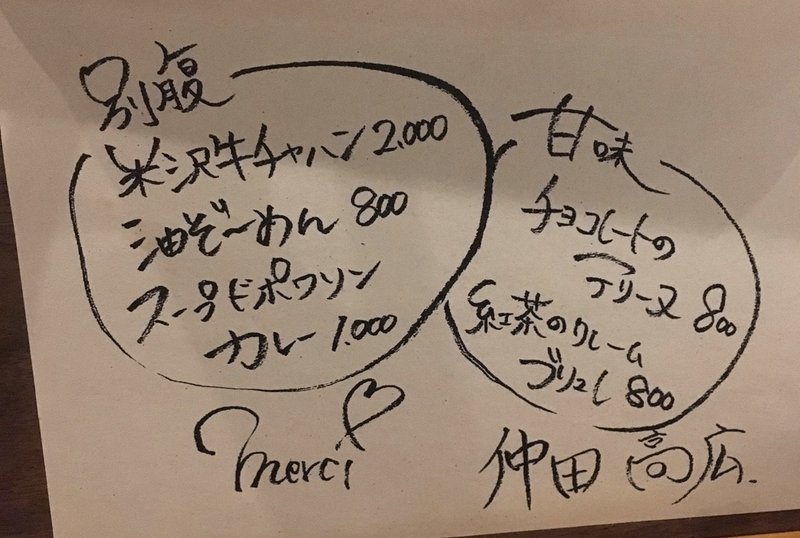 別腹
米沢牛チャハン 2,000
油ぞ〜めん 800
スープドポワソン
カレー 1,000
merci
甘味
チョコレートの
テリーヌ 800
紅茶のクレーム
ブリュレ 800
仲田 高広.